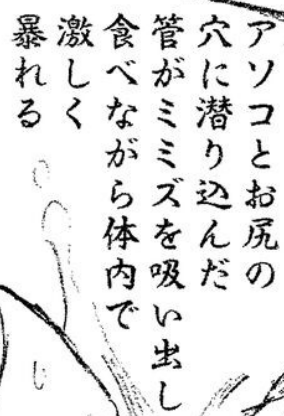 アソコとお尻の
穴に潜り込んだ
管がミミズを吸い出し
食べながら体内で
激しく
暴れる